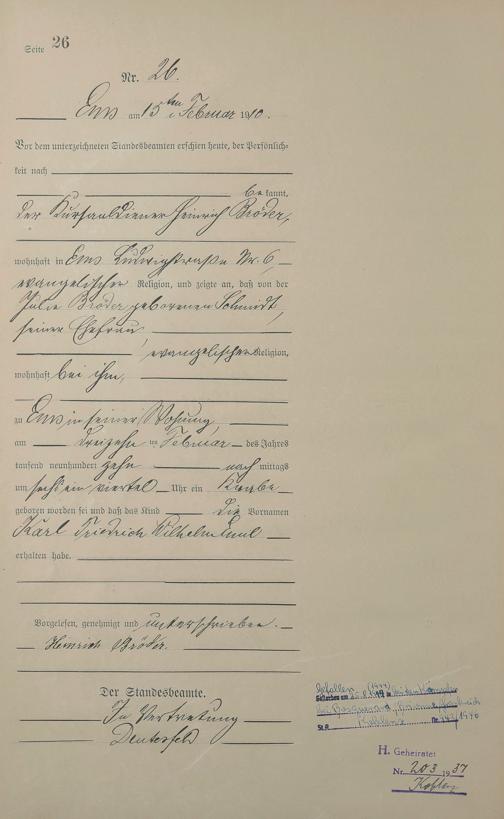 Seite 26
Nr. 26.
Ems am 15ten Februar 1910.
Vor dem unterzeichneten Standesbeamten erschien heute, der Persönlich-
keit nach
bekannt,
der Kursaaldiener Heinrich Bröder,
wohnhaft in Ems Ludwigstraße Nr. 6,
evangelischer Religion, und zeigte an, daß von der
Julie Bröder geborenen Schmidt,
seiner Ehefrau,
evangelischer Religion,
wohnhaft bei ihm,
zu Ems in seiner Wohnung,
am dreizehnten Februar des Jahres
tausend neunhundert zehn nach mittags
um sechs ein viertel Uhr ein Knabe
geboren worden sei und daß das Kind die Vornamen
Karl Friedrich Wilhelm Emil
erhalten habe.
Vorgelesen, genehmigt und unterschrieben.
Heinrich Bröder.
Der Standesbeamte.
In Vertretung
Gefallen
Gestorben am
St.A. Koblenz Nr.
H. Geheiratet
Nr. 203 1937
Koblenz